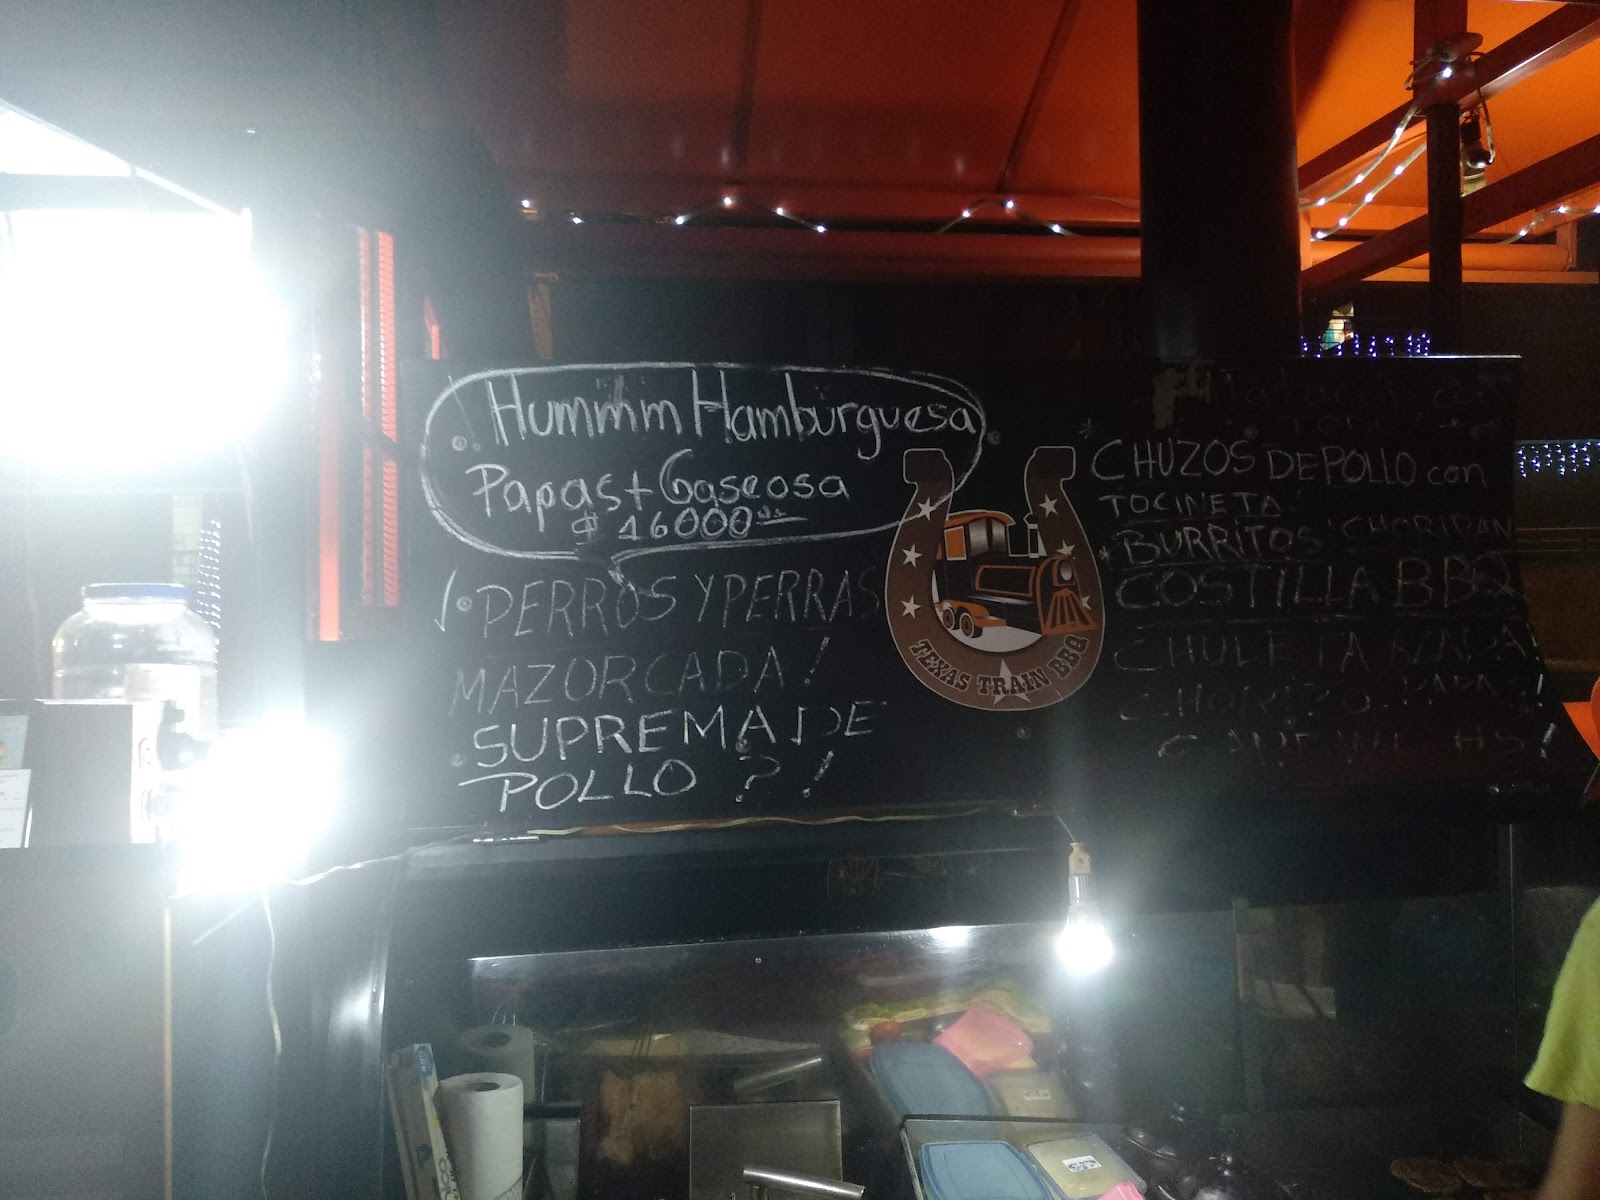 Hummm Hamburguesa
Papas + Gaseosa
$ 16000
PERROS Y PERRAS
MAZORCADA!
SUPREMA DE
POLLO ?!
TEXAS TRAIN BBQ
* CHUZOS DE POLLO con
TOCINETA!
* BURRITOS CHORIPAN
COSTILLA BBQ
CHULETA